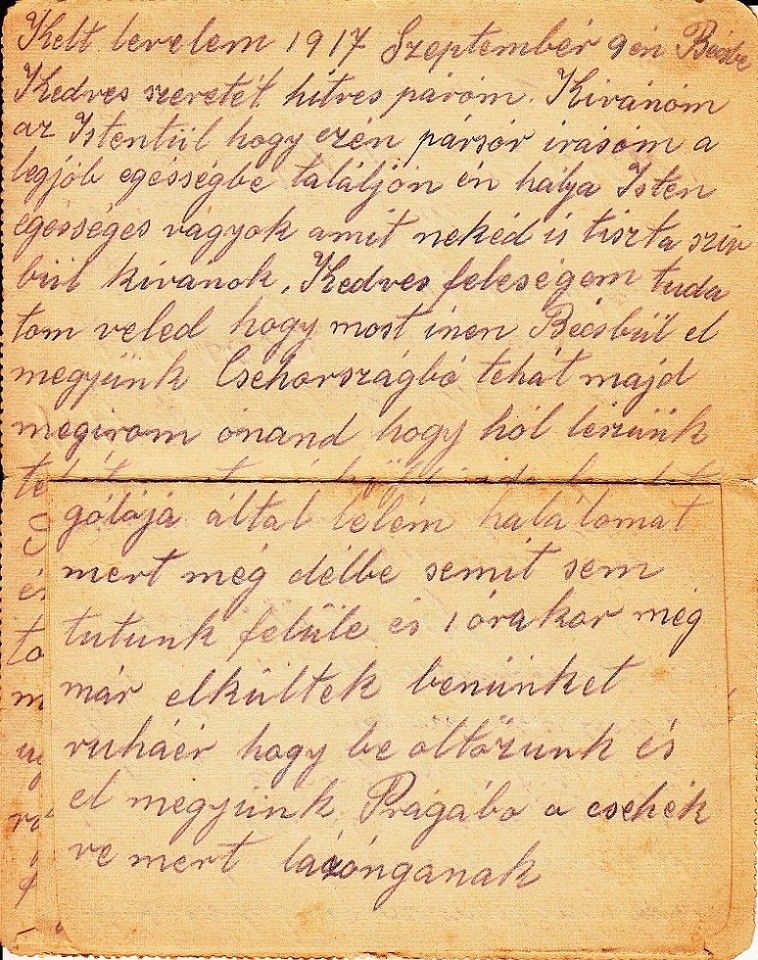 Kelt levelem 1917 Szeptember 9én Bécsbe
Kedves szeretét hitves páróm. Kivánóm
az Istentül hogy ezén pársór irásóm a
legjób egésségbe találjón én hálya Isten
egésséges vágyok amit nekéd is tiszta szív
bül kivanok, Kedves feleségem tuda
tom veled hogy most inen Bécsbül el
megyünk Csehországbó tehát majd
megirom ónand hogy hól leszünk
gólójá által lelém halálomat
mert még délbe semit sem
tutunk felüle és 1 órakor még
már elkültek benünket
ruháér hogy be öltözunk és
el megyünk Prágábo a csehék
re mert lázónganak